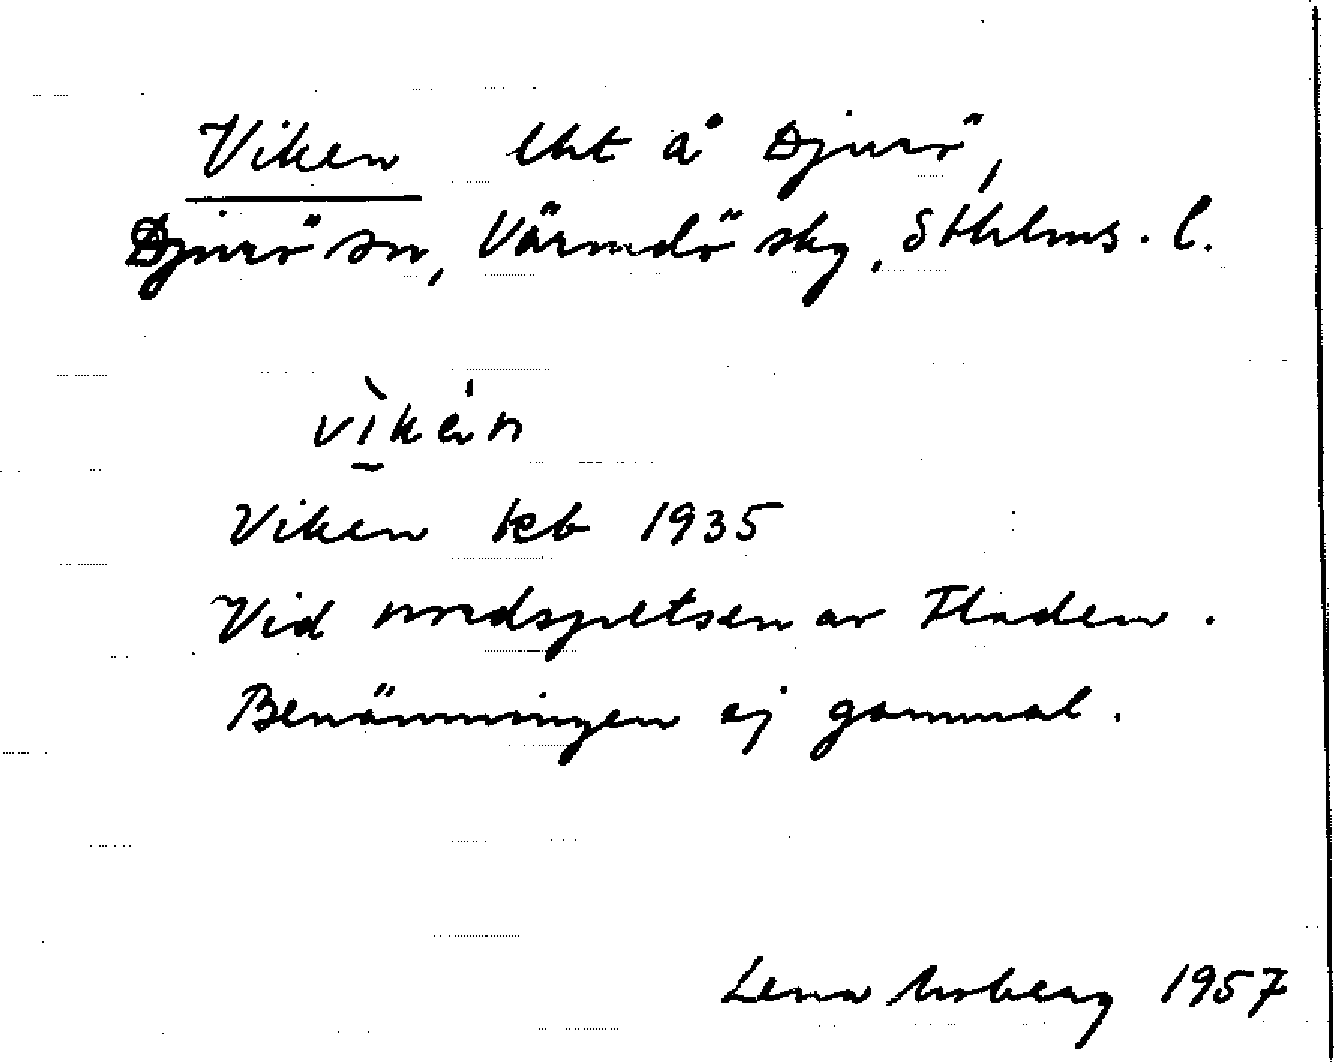 Viken lht å Djurö,
Djurö sn, Värmdö skg, Sthlms. l.
vìkèn
Viken kb 1935
Vid nordspetsen av Fladen.
Benämningen ej gammal.
Lena 1957